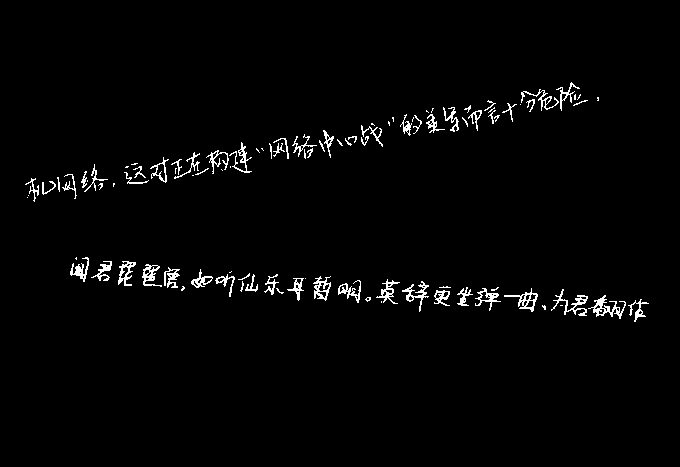 机网络，这对正在构建“网络中心战”的美军而言十分危险，
闻君琵琶语，如听仙乐耳暂明。莫辞更坐弹一曲、为君翻作